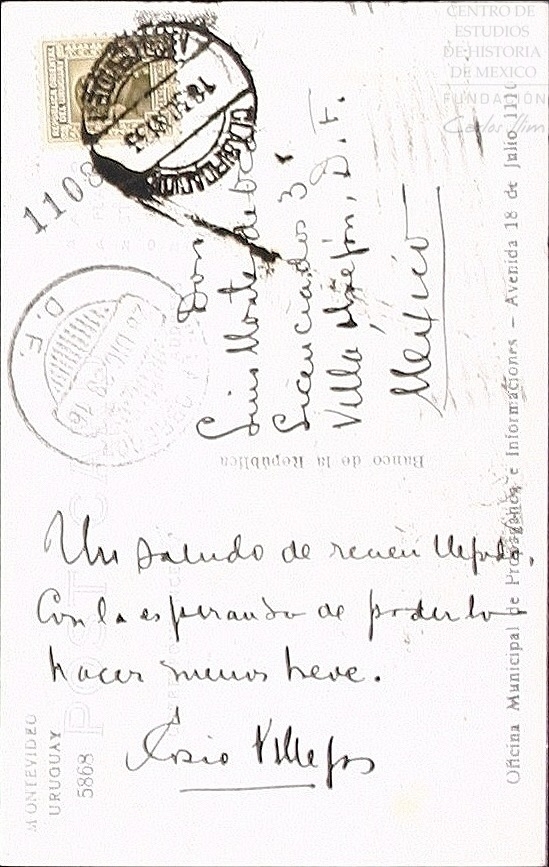 CENTRO DE
ESTUDIOS
DE HISTORIA
DE MEXICO
FUNDACIÓN
Carlos Slim
1108
D. F.
Don
Licenciados 3
Villa Obregón, D. F.
México
Banco de la República
Un saludo de recién llegado.
Con la esperanza de poderlo
hacer menos breve.
Cosío Villegas
MONTEVIDEO
URUGUAY
5868
Oficina Municipal de Propaganda e Informaciones - Avenida 18 de Julio